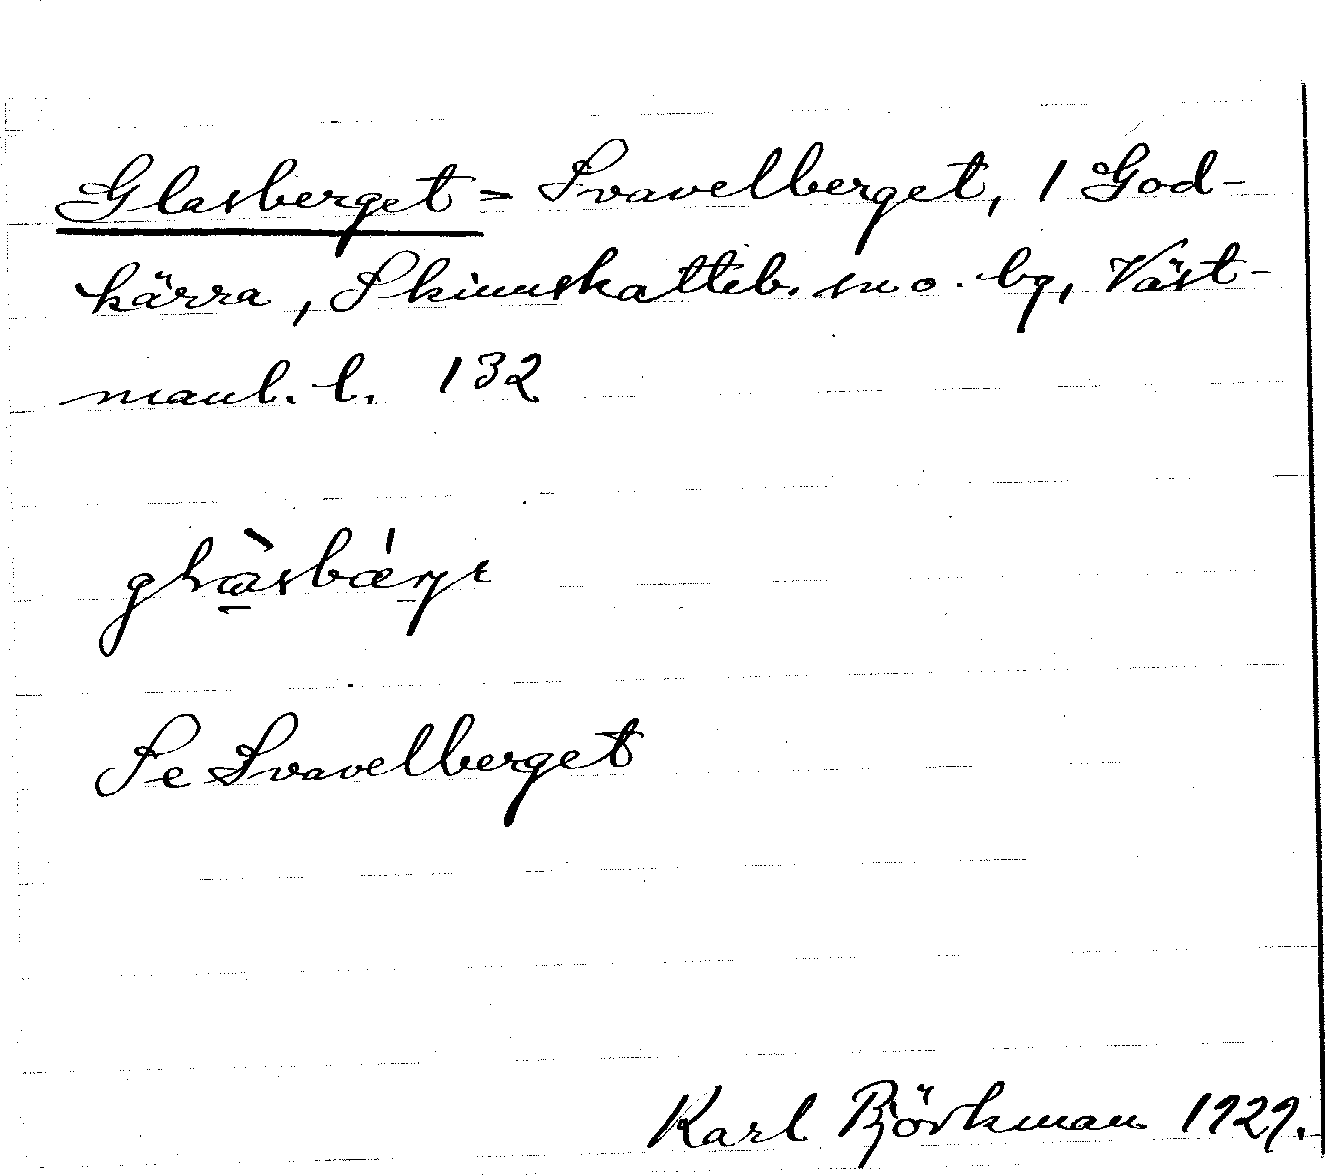 Glasberget = Svavelberget, 1 God-
kärra, Skinnskatteb. sn o. bg, Väst-
manl. l. 132
glàsbǽrjɛ
Se Svavelberget
Karl Björkman 1929.